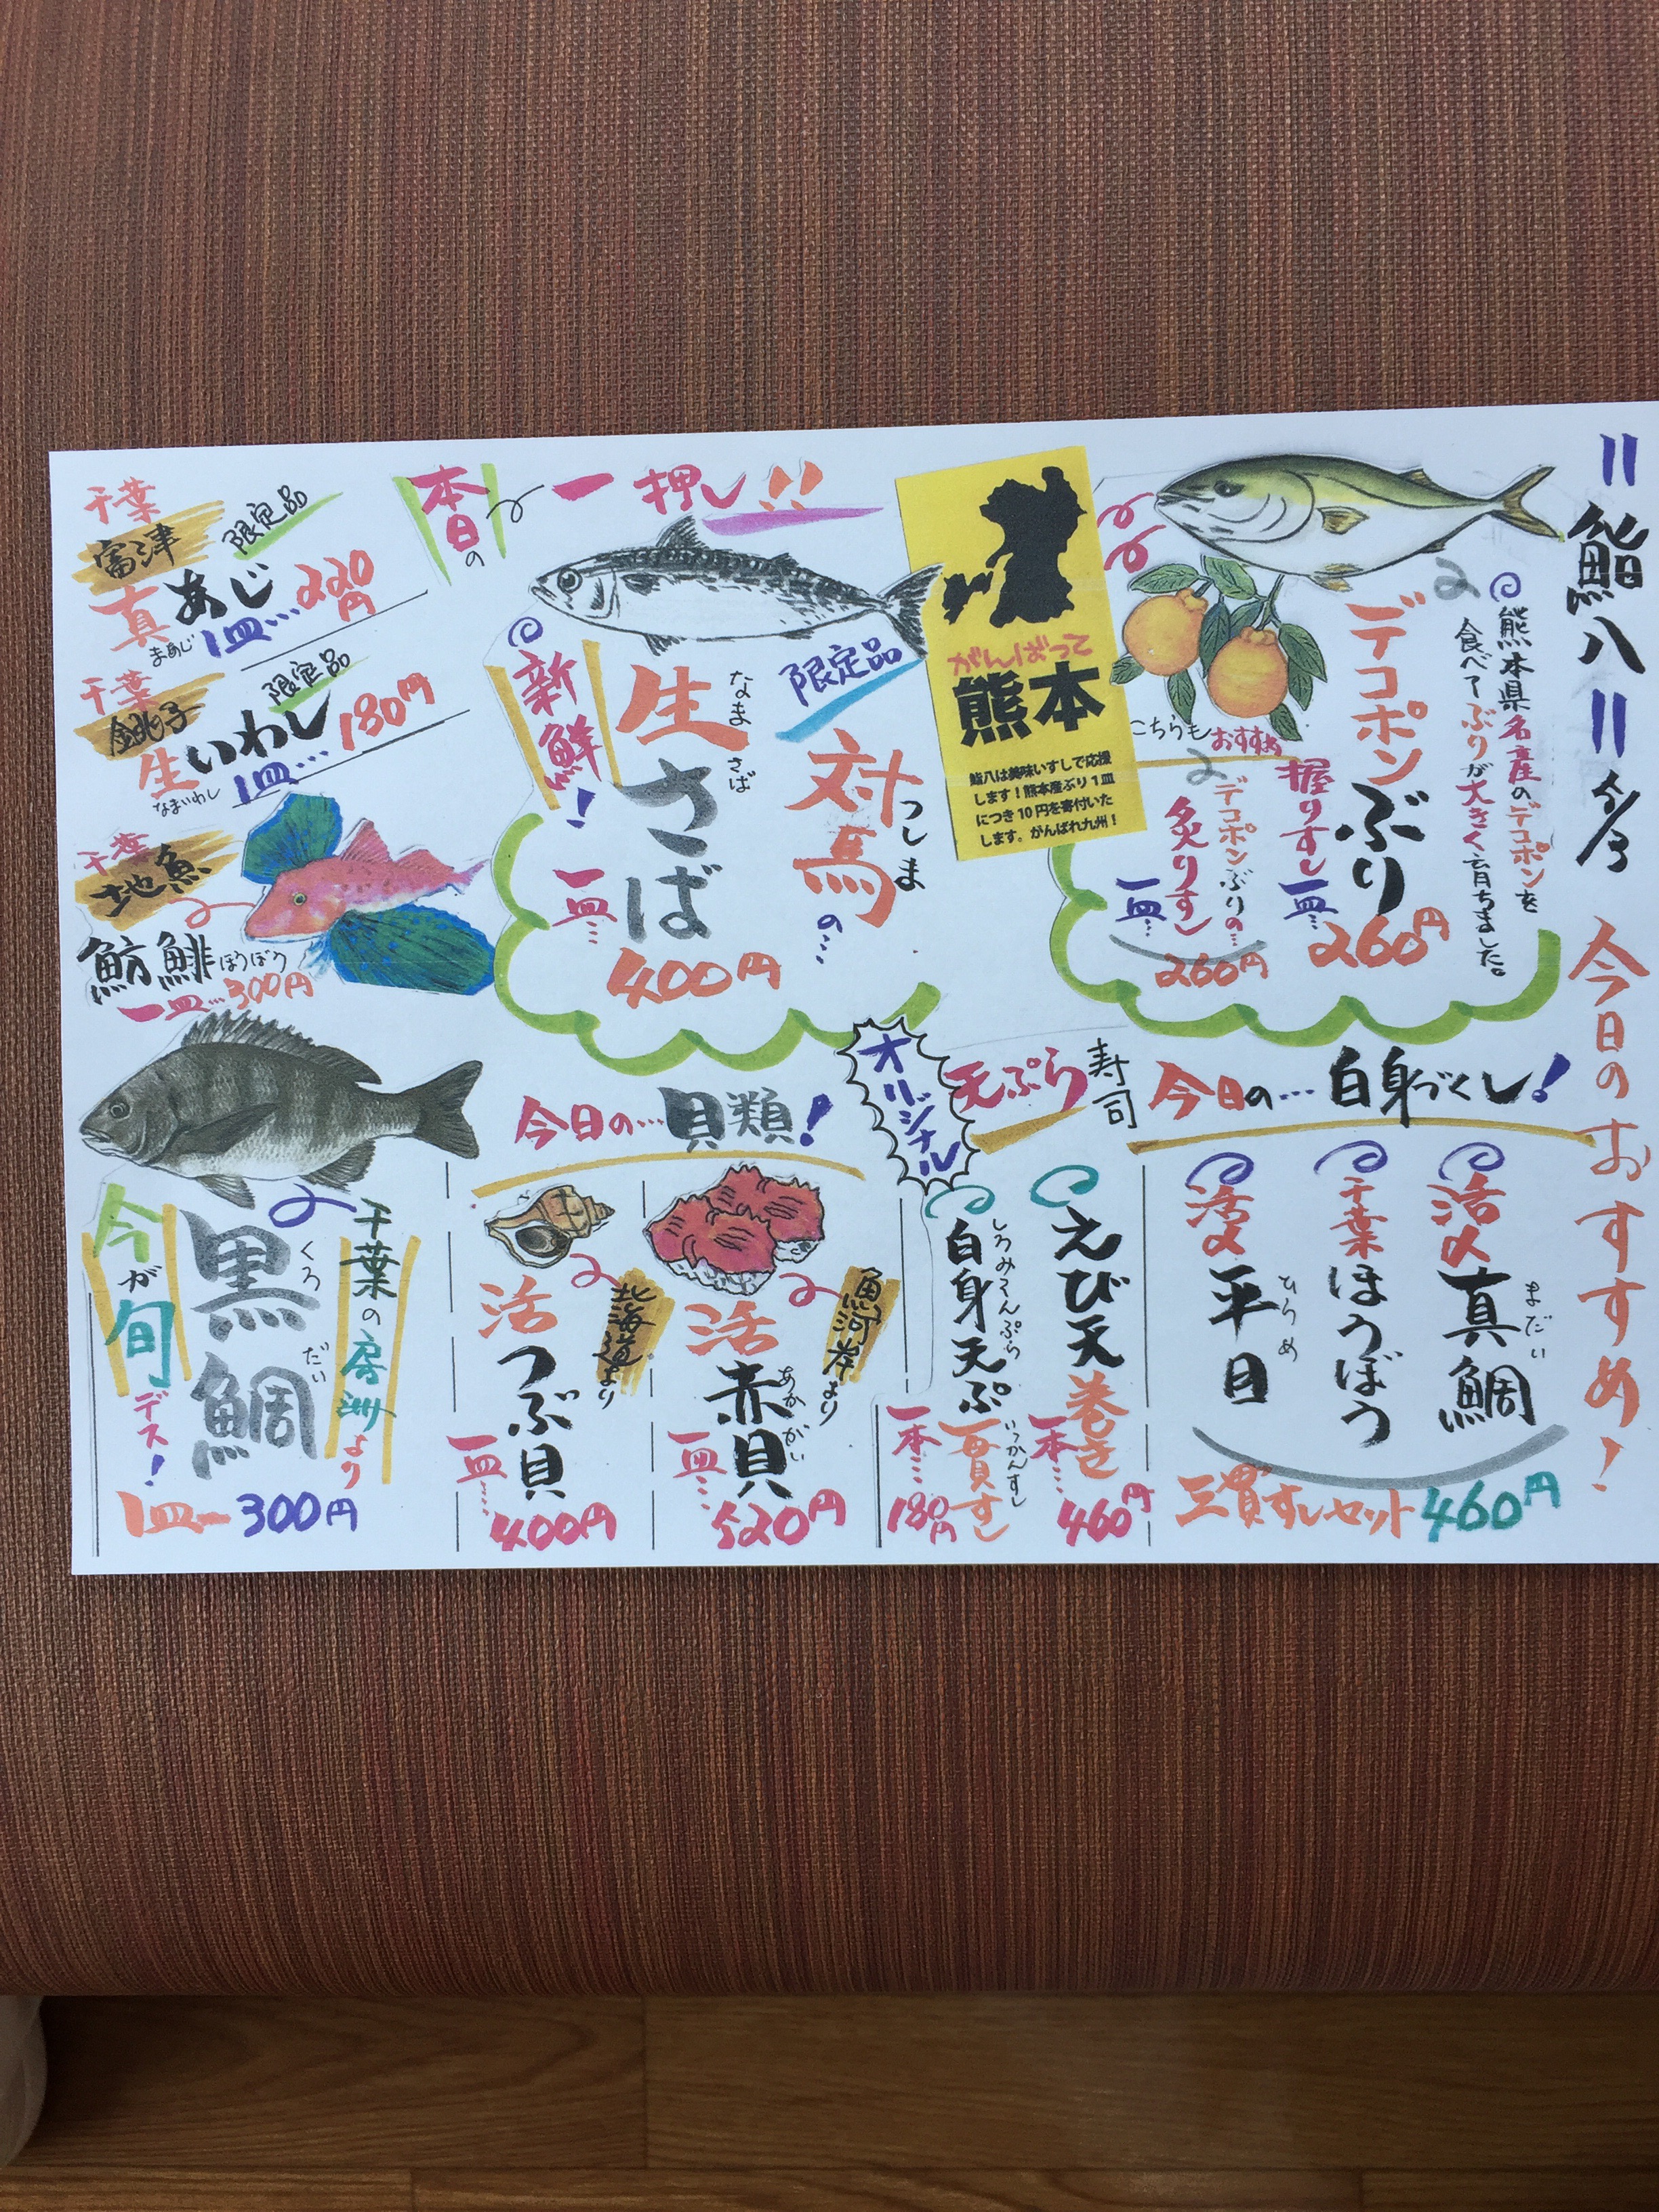 =鮨八= 5/3 今日のおすすめ!
熊本県名産のデコポンを
食べてぶりが大きく育ちました。
デコポンぶり
握りすし
一皿… 260円
こちらもおすすめ
デコポンぶりの…
炙りすし
一皿… 260円
がんばって
熊本
鮨八は美味いすしで応援
します!熊本産ぶり1皿
につき10円を寄付いた
します。がんばれ九州!
本日の一押し!!
限定品
対馬の…
つしま
生さば
なまさば
新鮮!
一皿… 400円
千葉
富津
限定品
真あじ
まあじ
1皿… 220円
千葉
銚子
限定品
生いわし
なまいわし
1皿… 180円
千葉
地魚
魴鯡
ほうぼう
一皿…300円
今日の…白身づくし!
活〆真鯛
まだい
千葉ほうぼう
活〆平目
ひらめ
三貫すしセット 460円
オリジナル
天ぷら寿司
えび天巻き
一本… 460円
白身天ぷ
しろみてんぷら
一貫すし
いっかんすし
一本… 180円
今日の…貝類!
魚河岸より
活赤貝
あかがい
一皿… 520円
北海道より
活つぶ貝
一皿… 400円
千葉の房洲より
黒鯛
くろだい
今が旬デス!
1皿ー300円